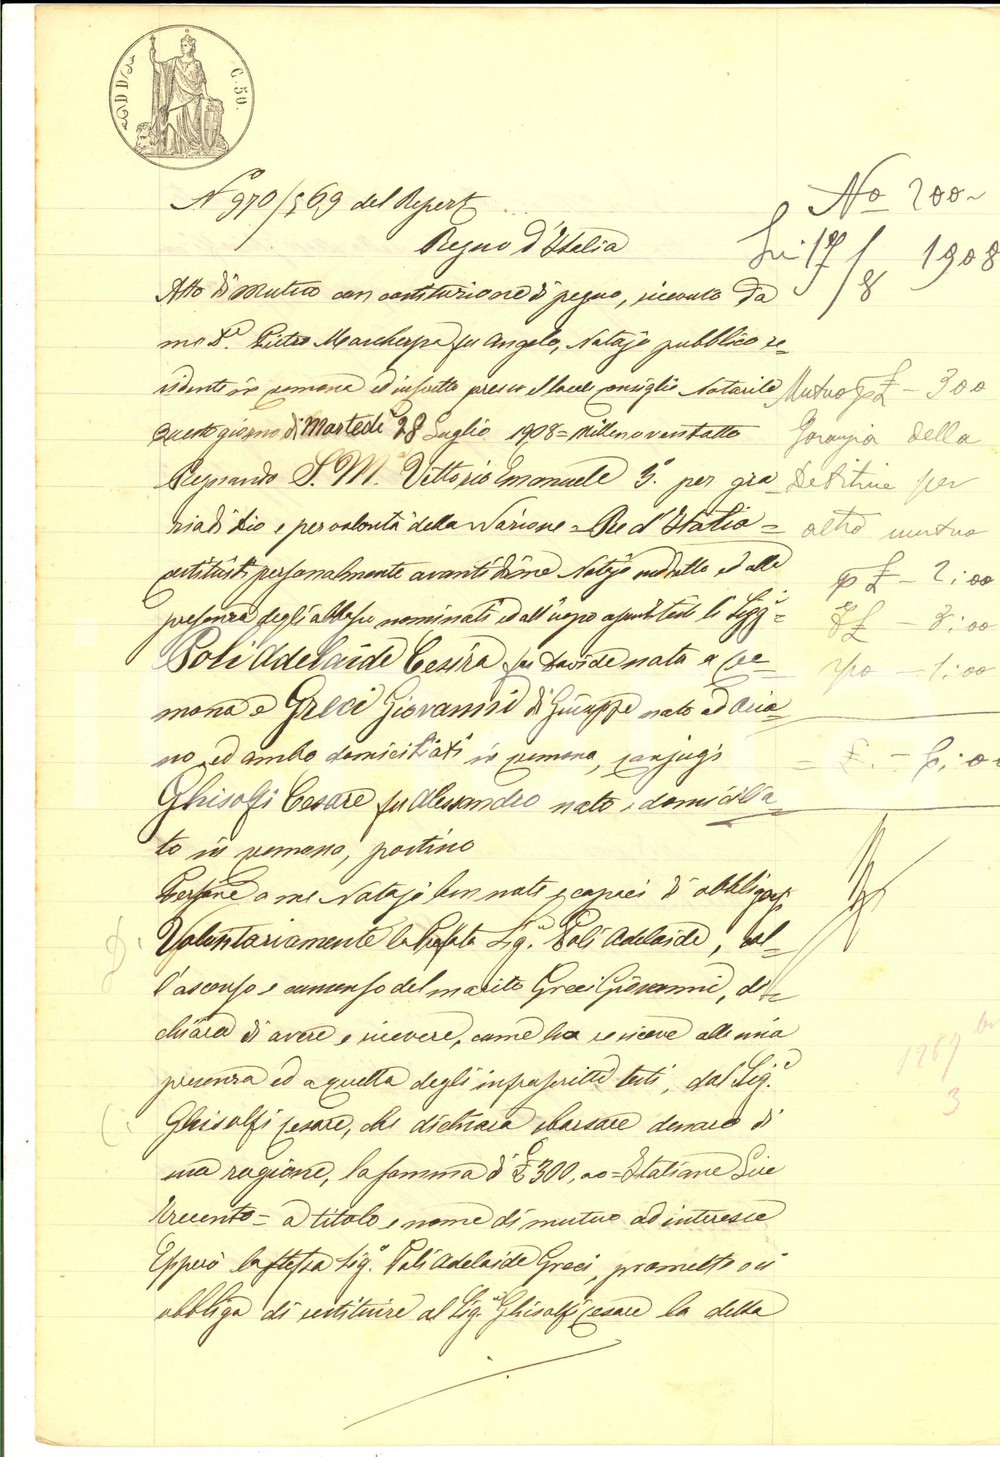 C. 50.
Nº 970/569 del Repert.
Regno d'Italia
Nº 200
Li 17/8 1908
Atto di Mutuo con costituzione di pegno, ricevuto da
me Dr. Pietro Marcherpa fu Angelo, Notajo pubblico re-
sidente in Cremona ed inscritto presso il locale Consiglio Notarile
Questo giorno di Martedì 28 Luglio 1908 = Millenovecentotto
Regnando S. M. Vittorio Emanuele 3º per gra-
zia di Dio e per volontà della Nazione = Re d'Italia =
Costituiti personalmente avanti di me Notajo suddetto ed alla
presenza degli abbasso nominati ed all'uopo assunti testi li Sigg.i =
Poli Adelaide Cesira fu Davide nata a Cre-
mona e Greci Giovanni di Giuseppe nato ad Aria-
no ed ambo domiciliati in Cremona, conjugi
Ghisolfi Cesare fu Alessandro nato e domicilia-
to in Cremona, postino
Persone a me Notajo ben note e capaci di obbligarsi
Volontariamente la Prefata Sig.a Poli Adelaide, col-
l'assenso e consenso del marito Greci Giovanni, di-
chiara di avere e ricevere, come ha e riceve alla mia
presenza ed a quella degli infrascritti testi, dal Sig.r
Ghisolfi Cesare, che dichiara sborsare denaro di
sua ragione, la somma di £ 300,00 = Italiane Lire
trecento = a titolo e nome di mutuo ad interesse
Epperò la stessa Sig.a Poli Adelaide Greci, promette e si
obbliga di restituire al Sig.r Ghisolfi Cesare la detta
Mutuo p £ - 300
Garanzia della
per
altro mutuo
p £ - 2:00
£ - 3:00
- 1:00
= £. - 6:00
1269
3